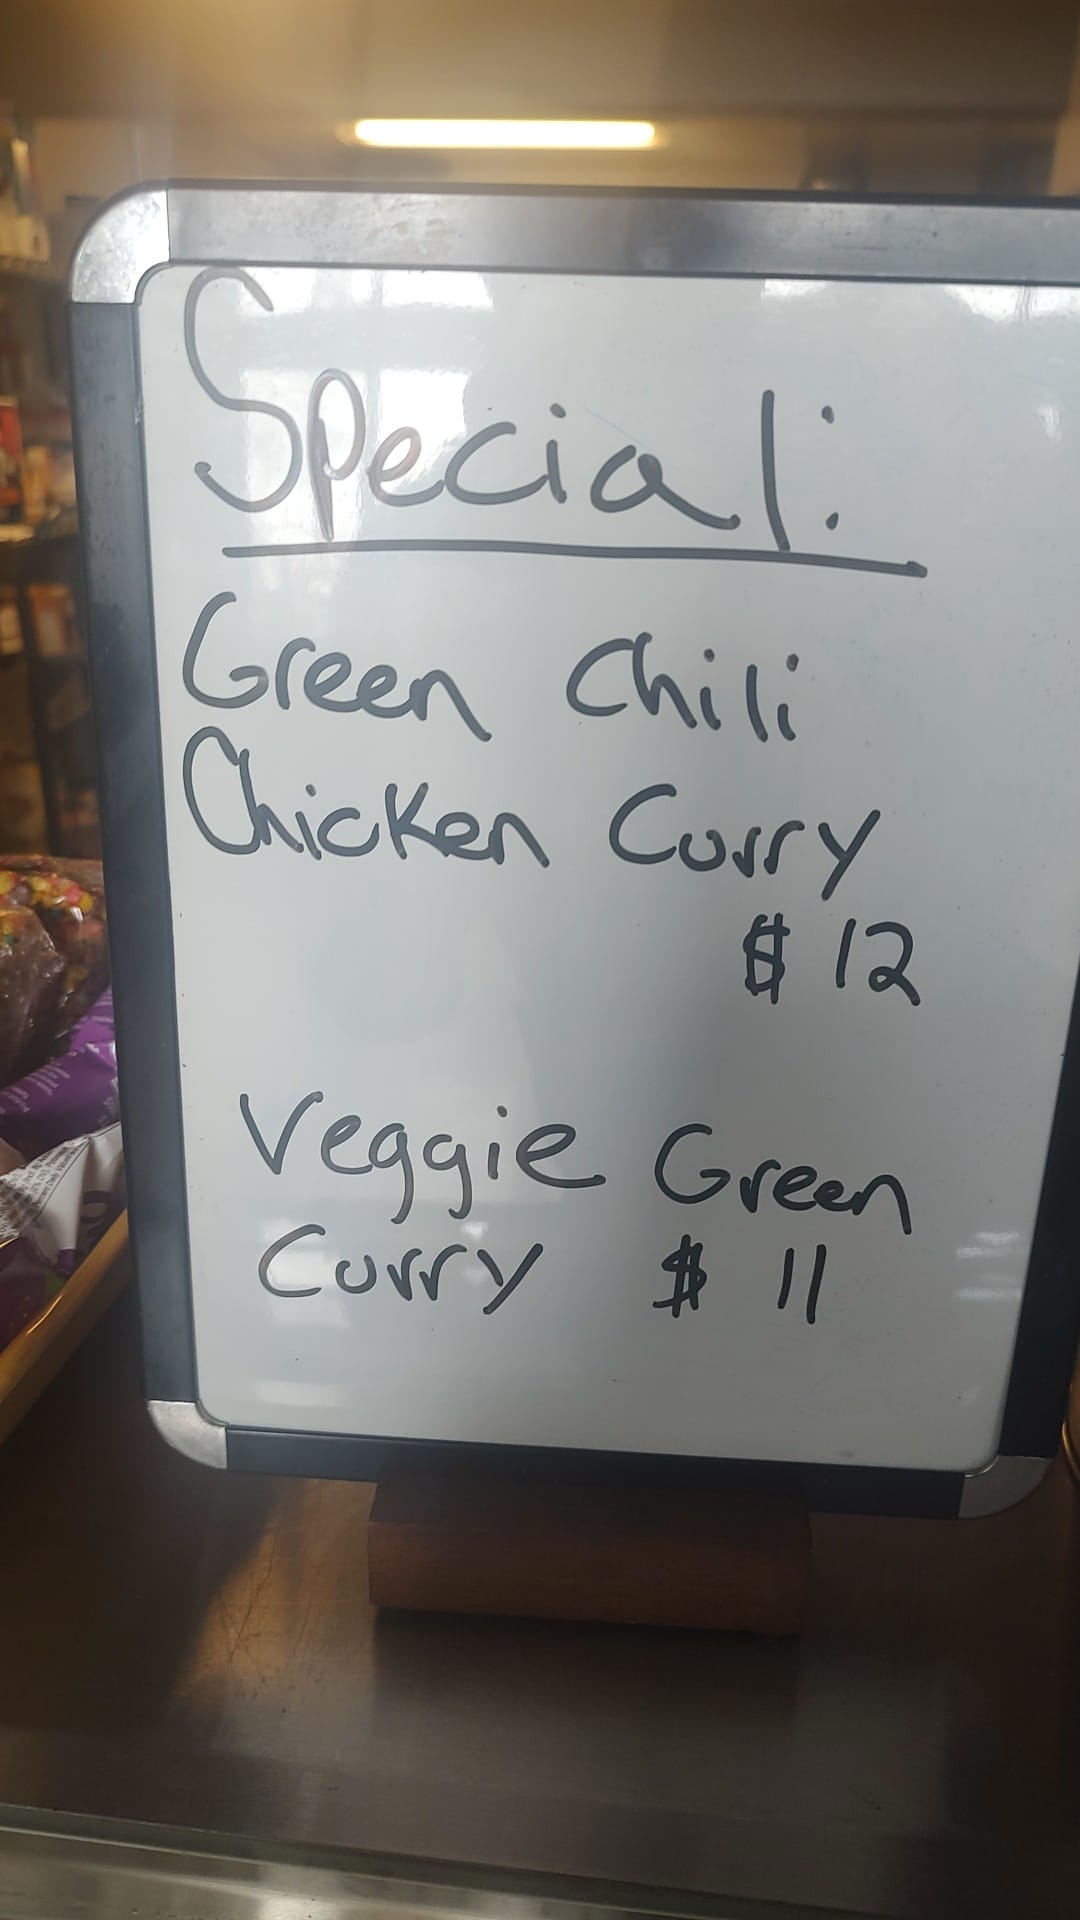 Special:
Green Chili
Chicken Curry
$ 12
Veggie Green
Curry $ 11